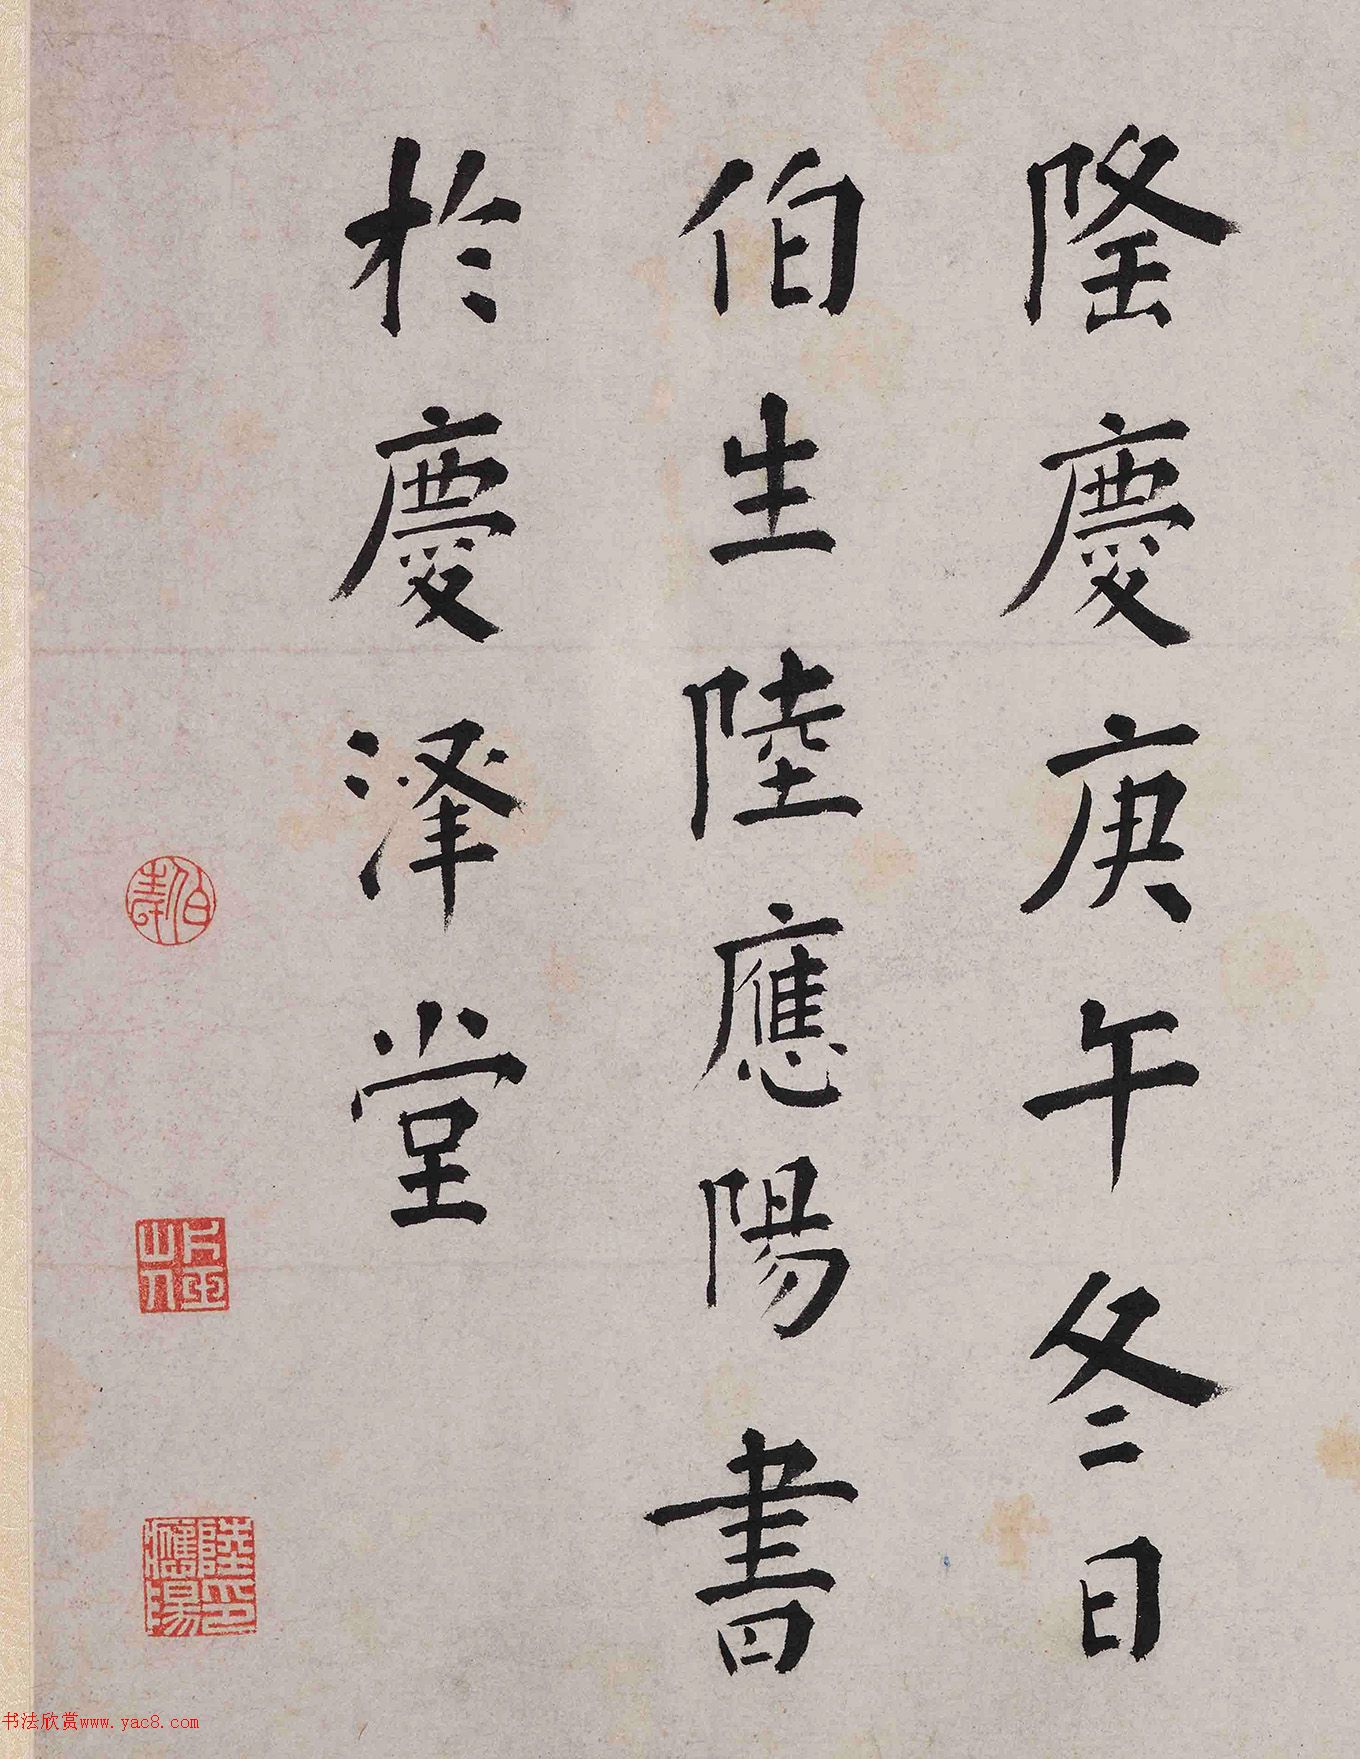 隆慶庚午冬日
伯生陸應陽書
於慶澤堂
陸應陽印
书法欣赏www.yac8.com